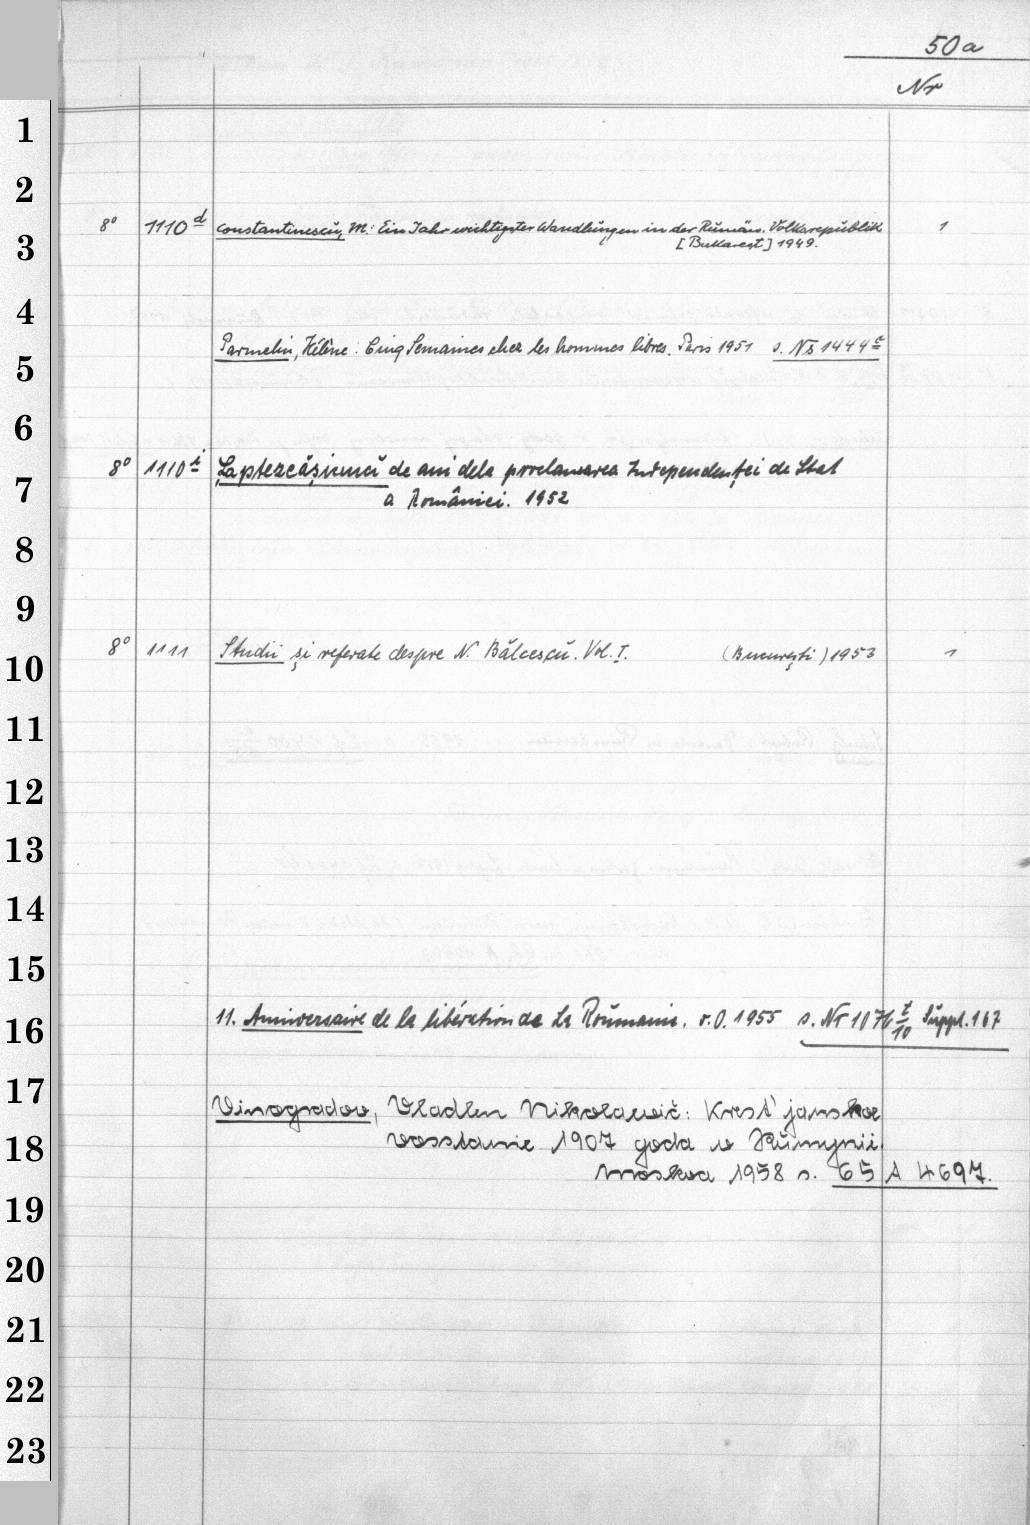 50a
Nr
1
2
8° 1110 d Constantinescu, M.: Ein Jahr wichtigster Wandlungen in der Rumän. Volksrepublik 1
3 [Bukarest] 1949.
4
Parmelin, Hélène: Cinq Semaines chez les hommes libres. Paris 1951 s. 1444
5
6
8° 1110 i Şaptezcăşiunu de ani dela proclamarea Independenţei de Stat
7 a României. 1952
8
9
8° 1111 Studii şi referate despre N. Bălcescu. Vol. I. (Bucureşti) 1953 1
10
11
12
13
14
15
16 11. Anniversaire de la libération de La Roumanie. o.O. 1955 s. Nr 1076 t/10 Suppl. 167
17
Vinogradov, Vladlen Nikolaevič: Krest'janskoe
18 vosstanie 1907 goda v Rumynii.
Moskva 1958 s. 65 A 4697.
19
20
21
22
23